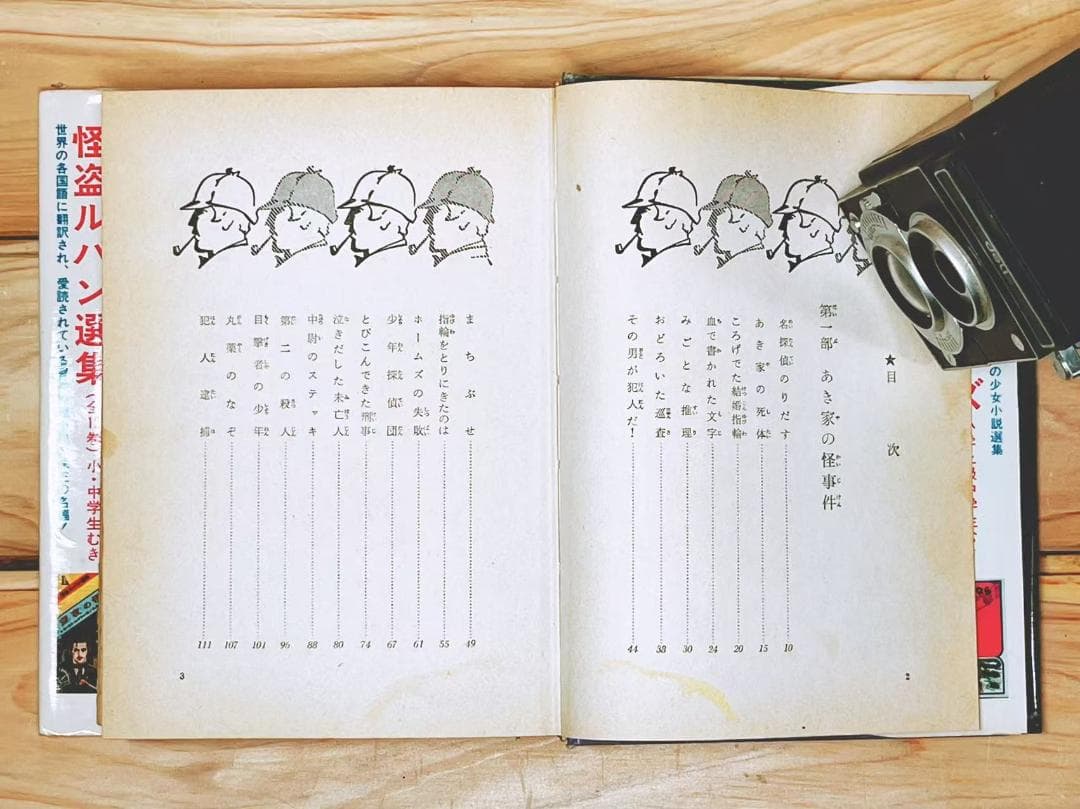 ★目次
第一部 あき家の怪事件
名探偵のりだす 10
あき家の死体 15
ころげでた結婚指輪 20
血で書かれた文字 24
みごとな推理 30
おどろいた巡査 38
その男が犯人だ! 44
2
まちぶせ 49
指輪をとりにきたのは 55
ホームズの失敗 61
少年探偵団 67
とびこんできた刑事 74
泣きだした未亡人 80
中尉のステッキ 88
第二の殺人 96
目撃者の少年 101
丸薬のなぞ 107
犯人逮捕 111
3
怪盗ルパン選集
小・中学生むき
世界の各国語に翻訳され、愛読されている
の少女小説選集